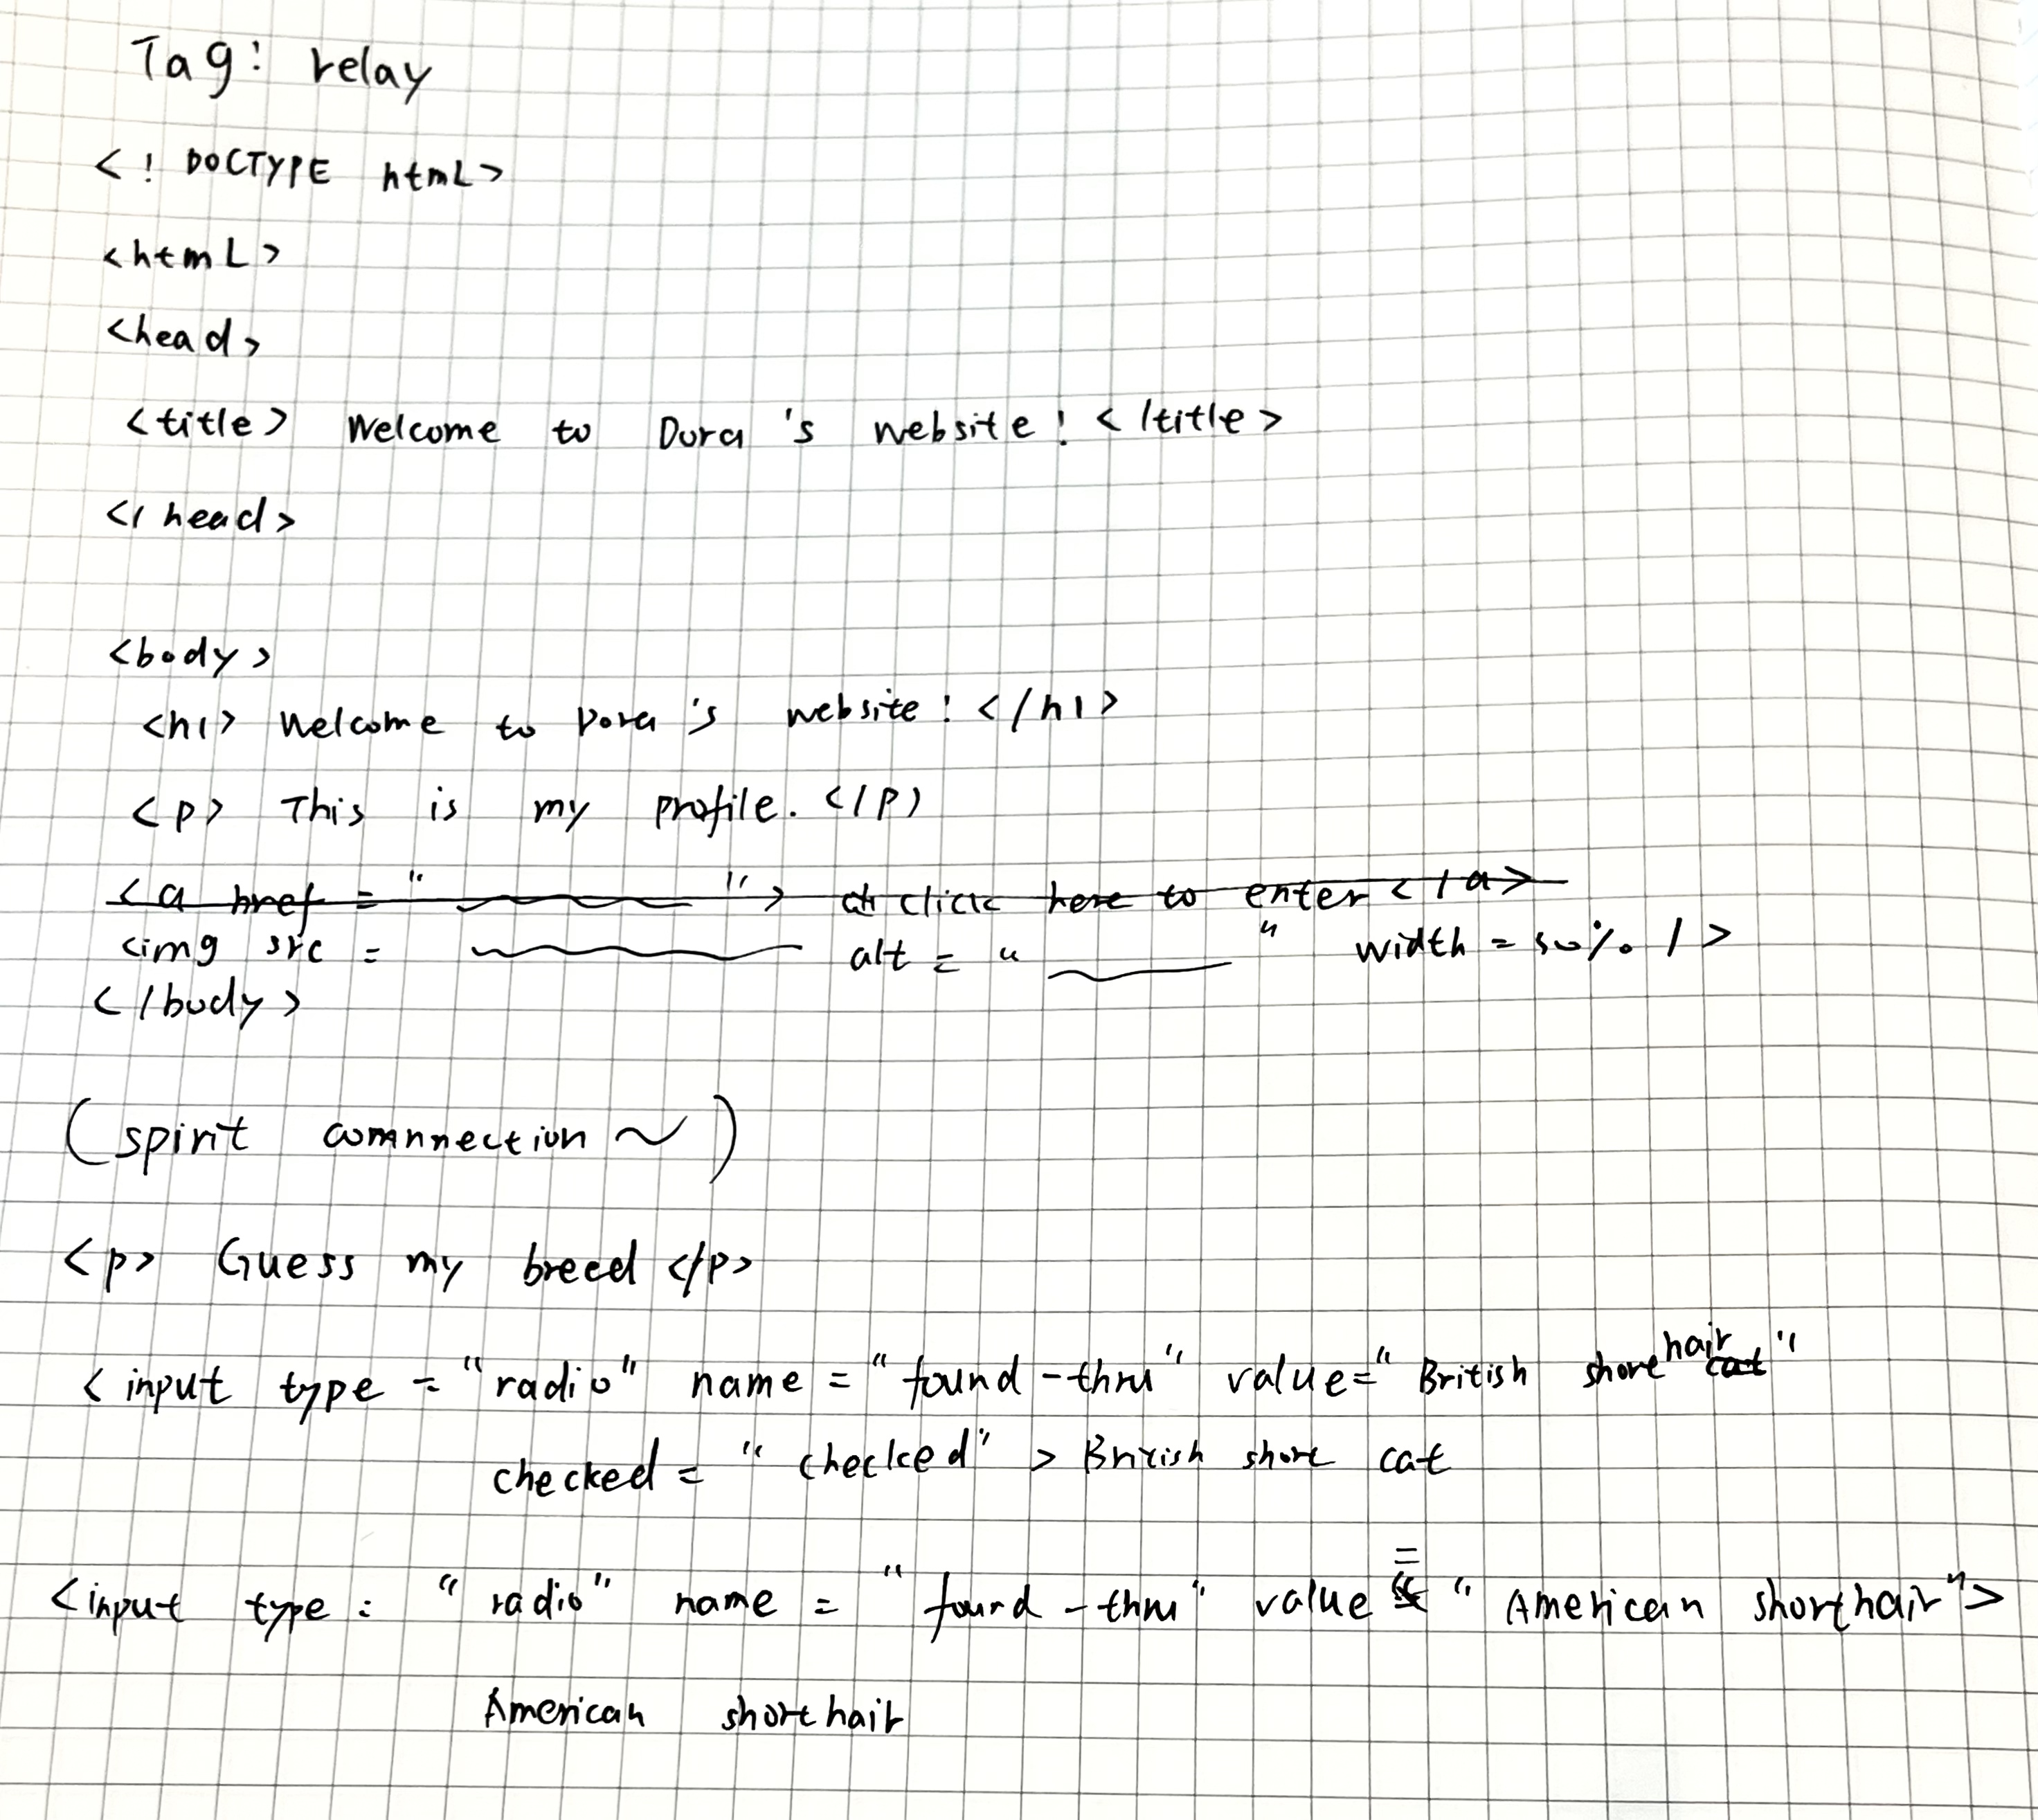 Tag: relay
<! DOCTYPE html>
<html>
<head>
<title> Welcome to Dora's website! </title>
</head>
<body>
<h1> Welcome to Dora's website! </h1>
<p> This is my profile. </p>
<a href = " "> click here to enter </a>
<img src = alt = " " width = 50% />
</body>
(spirit comnnection ~)
<p> Guess my breed </p>
<input type = "radio" name = "found-thru" value = "British short hair cat"
checked = "checked" > British short cat
<input type = "radio" name = "found-thru" value = "American shorthair">
American shorthair